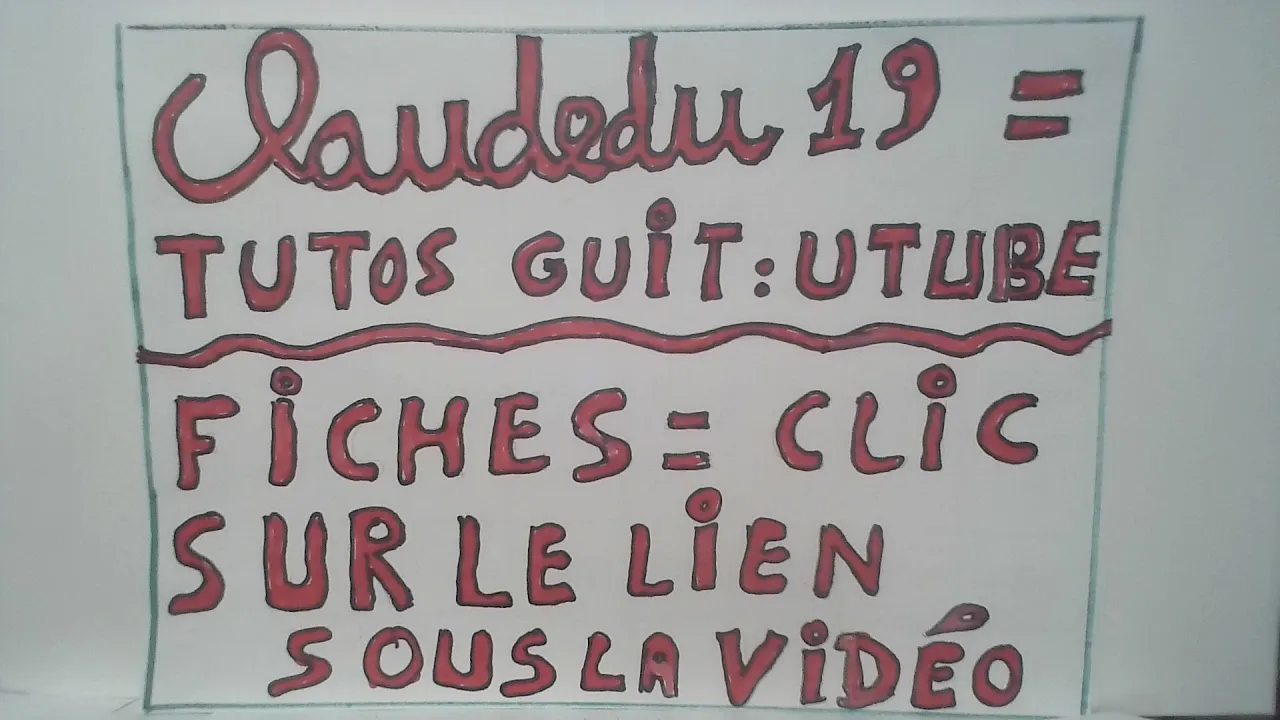 Claudedu 19 =
TUTOS GUiT: UTUBE
FiCHES = CLiC
SUR LE LiEN
SOUS LA ViDÉO